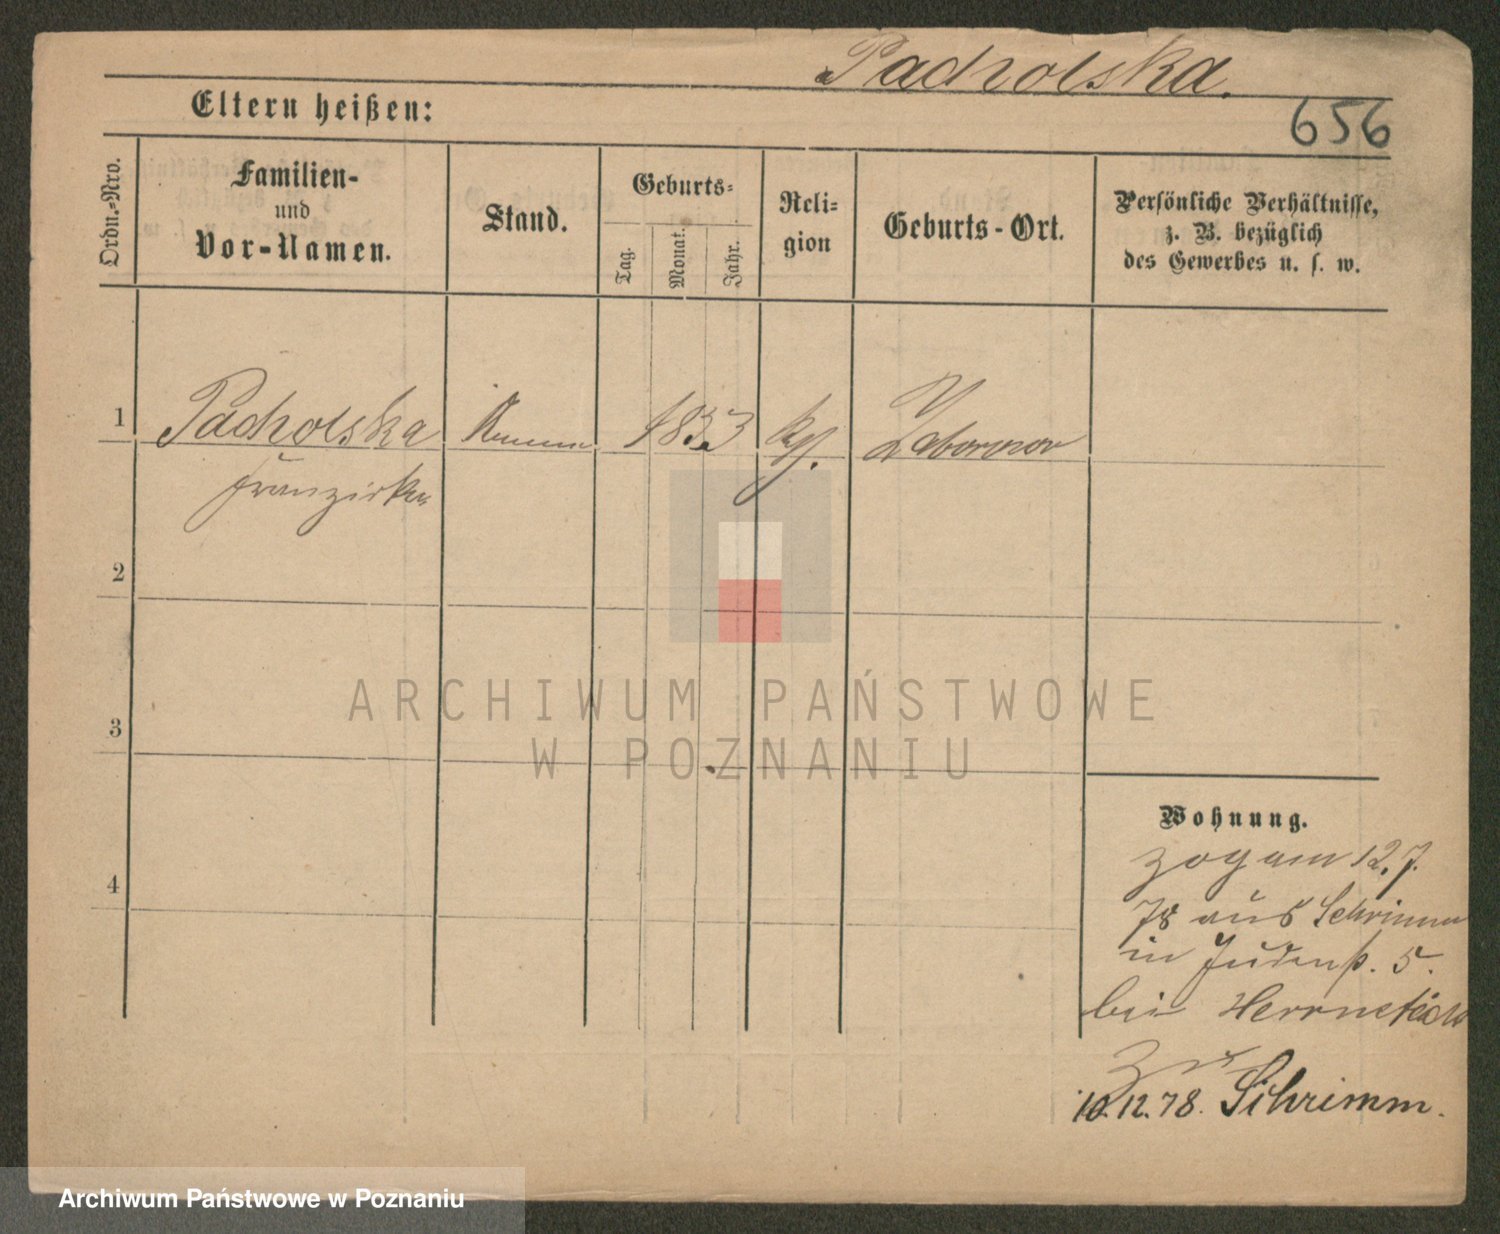 Pacholska.
656
Eltern heißen:
Ordn.-Nro.
Familien-
und
Vor-Namen.
Stand.
Geburts-
Tag.
Monat.
Jahr.
Reli-
gion
Geburts-Ort.
Persönliche Verhältnisse,
z. B. bezüglich
des Gewerbes u. s. w.
1
Pacholska
Amme
1833
kth.
Zaborowo
Franziska
2
3
4
ARCHIWUM PAŃSTWOWE
W POZNANIU
Wohnung.
zog am 12.7.
78 aus Schrimm
in Judenstr. 5.
bei Herrnstädt
zur
10.12.78. Schrimm.
Archiwum Państwowe w Poznaniu